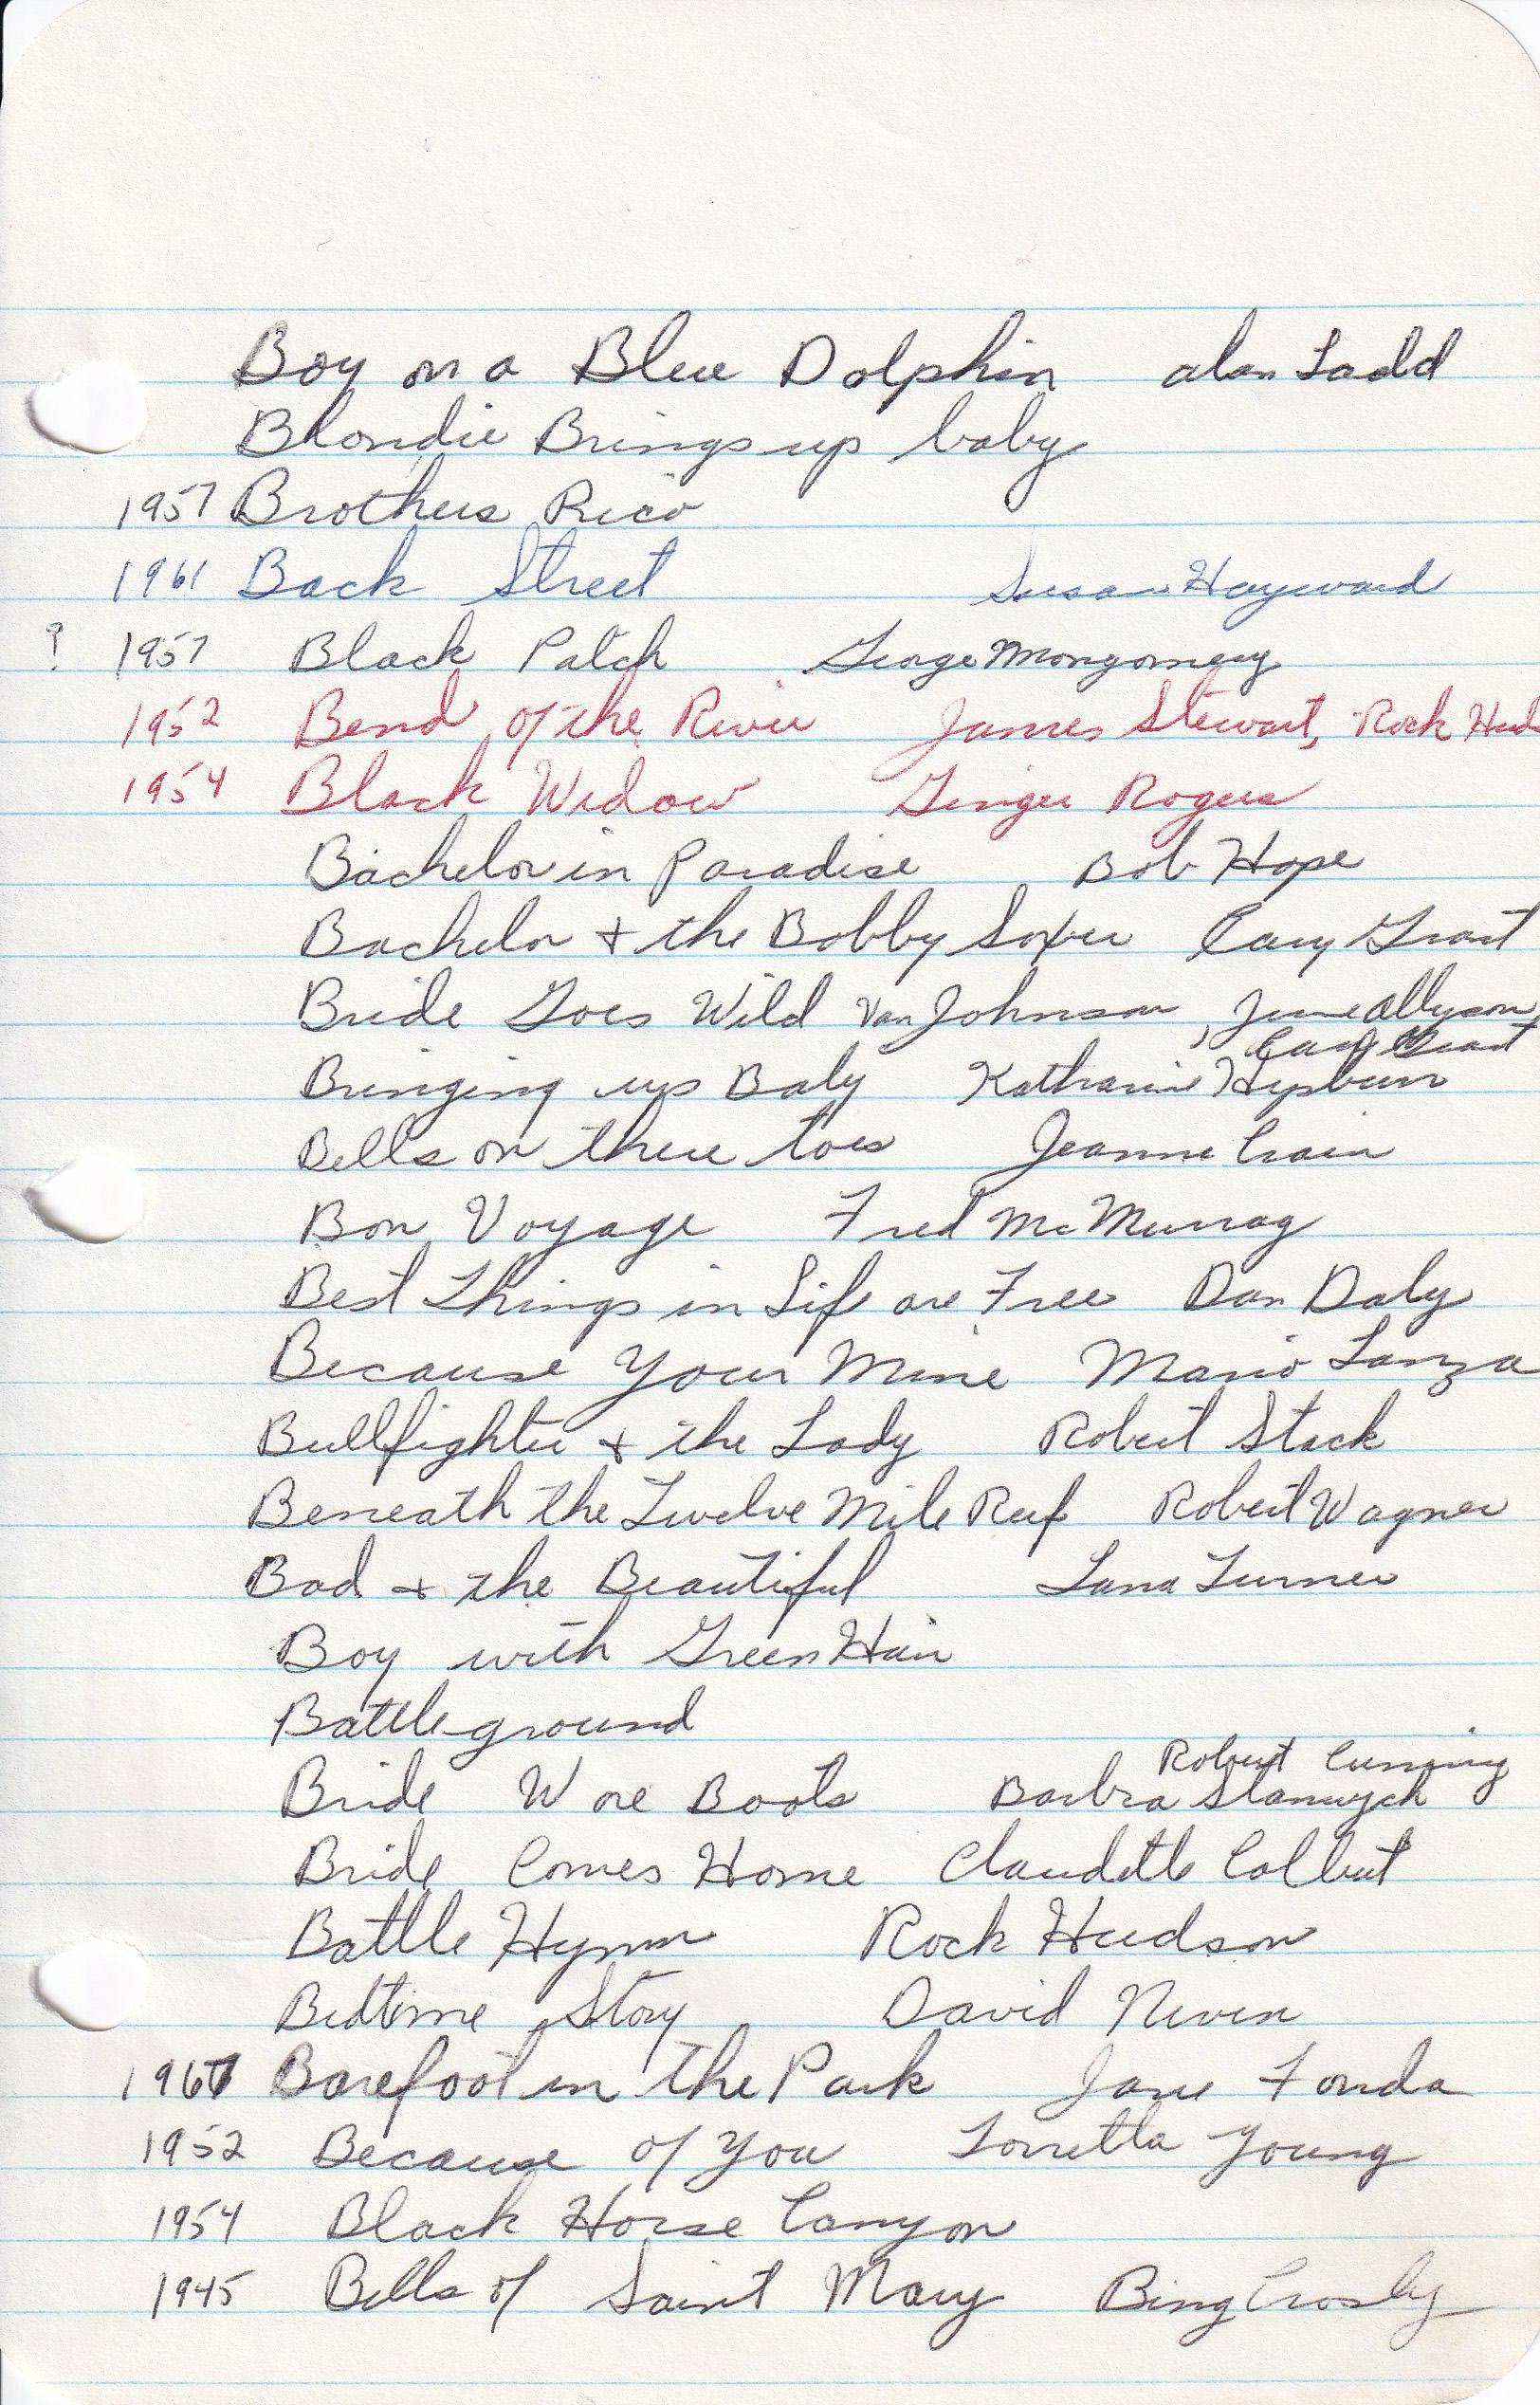 Boy on a Blue Dolphin alan Ladd
Blondie Brings up baby
1957 Brothers Rico
1961 Back Street Susan Hayward
? 1957 Black Patch George Mongomery
1952 Bend of the River James Stewart, Rock Huds
1954 Black Widow Ginger Rogers
Bachelor in Paradise Bob Hope
Bachelor + the Bobby Soxer Cary Grant
Bride Goes Wild Van Johnson, June allyson
Cary Grant
Bringing up Baby Katharine Hepburn
Bells on there toes Jeanne Crain
Bon Voyage Fred McMurray
Best Things in Life are Free Dan Daly
Because Your Mine Mario Lanza
Bullfighter + the Lady Robert Stack
Beneath the Twelve Mile Reef Robert Wagner
Bad + the Beautiful Lana Turner
Boy with Green Hair
Battleground
Robert Cumming
Bride Wore Boots Barbra Stanwych
Bride Comes Home Claudette Colbert
Battle Hymn Rock Hudson
Bedtime Story David Niven
1967 Barefoot in the Park Jane Fonda
1952 Because of You Lorretta Young
1954 Black Horse Canyon
1945 Bells of Saint Mary Bing Crosby